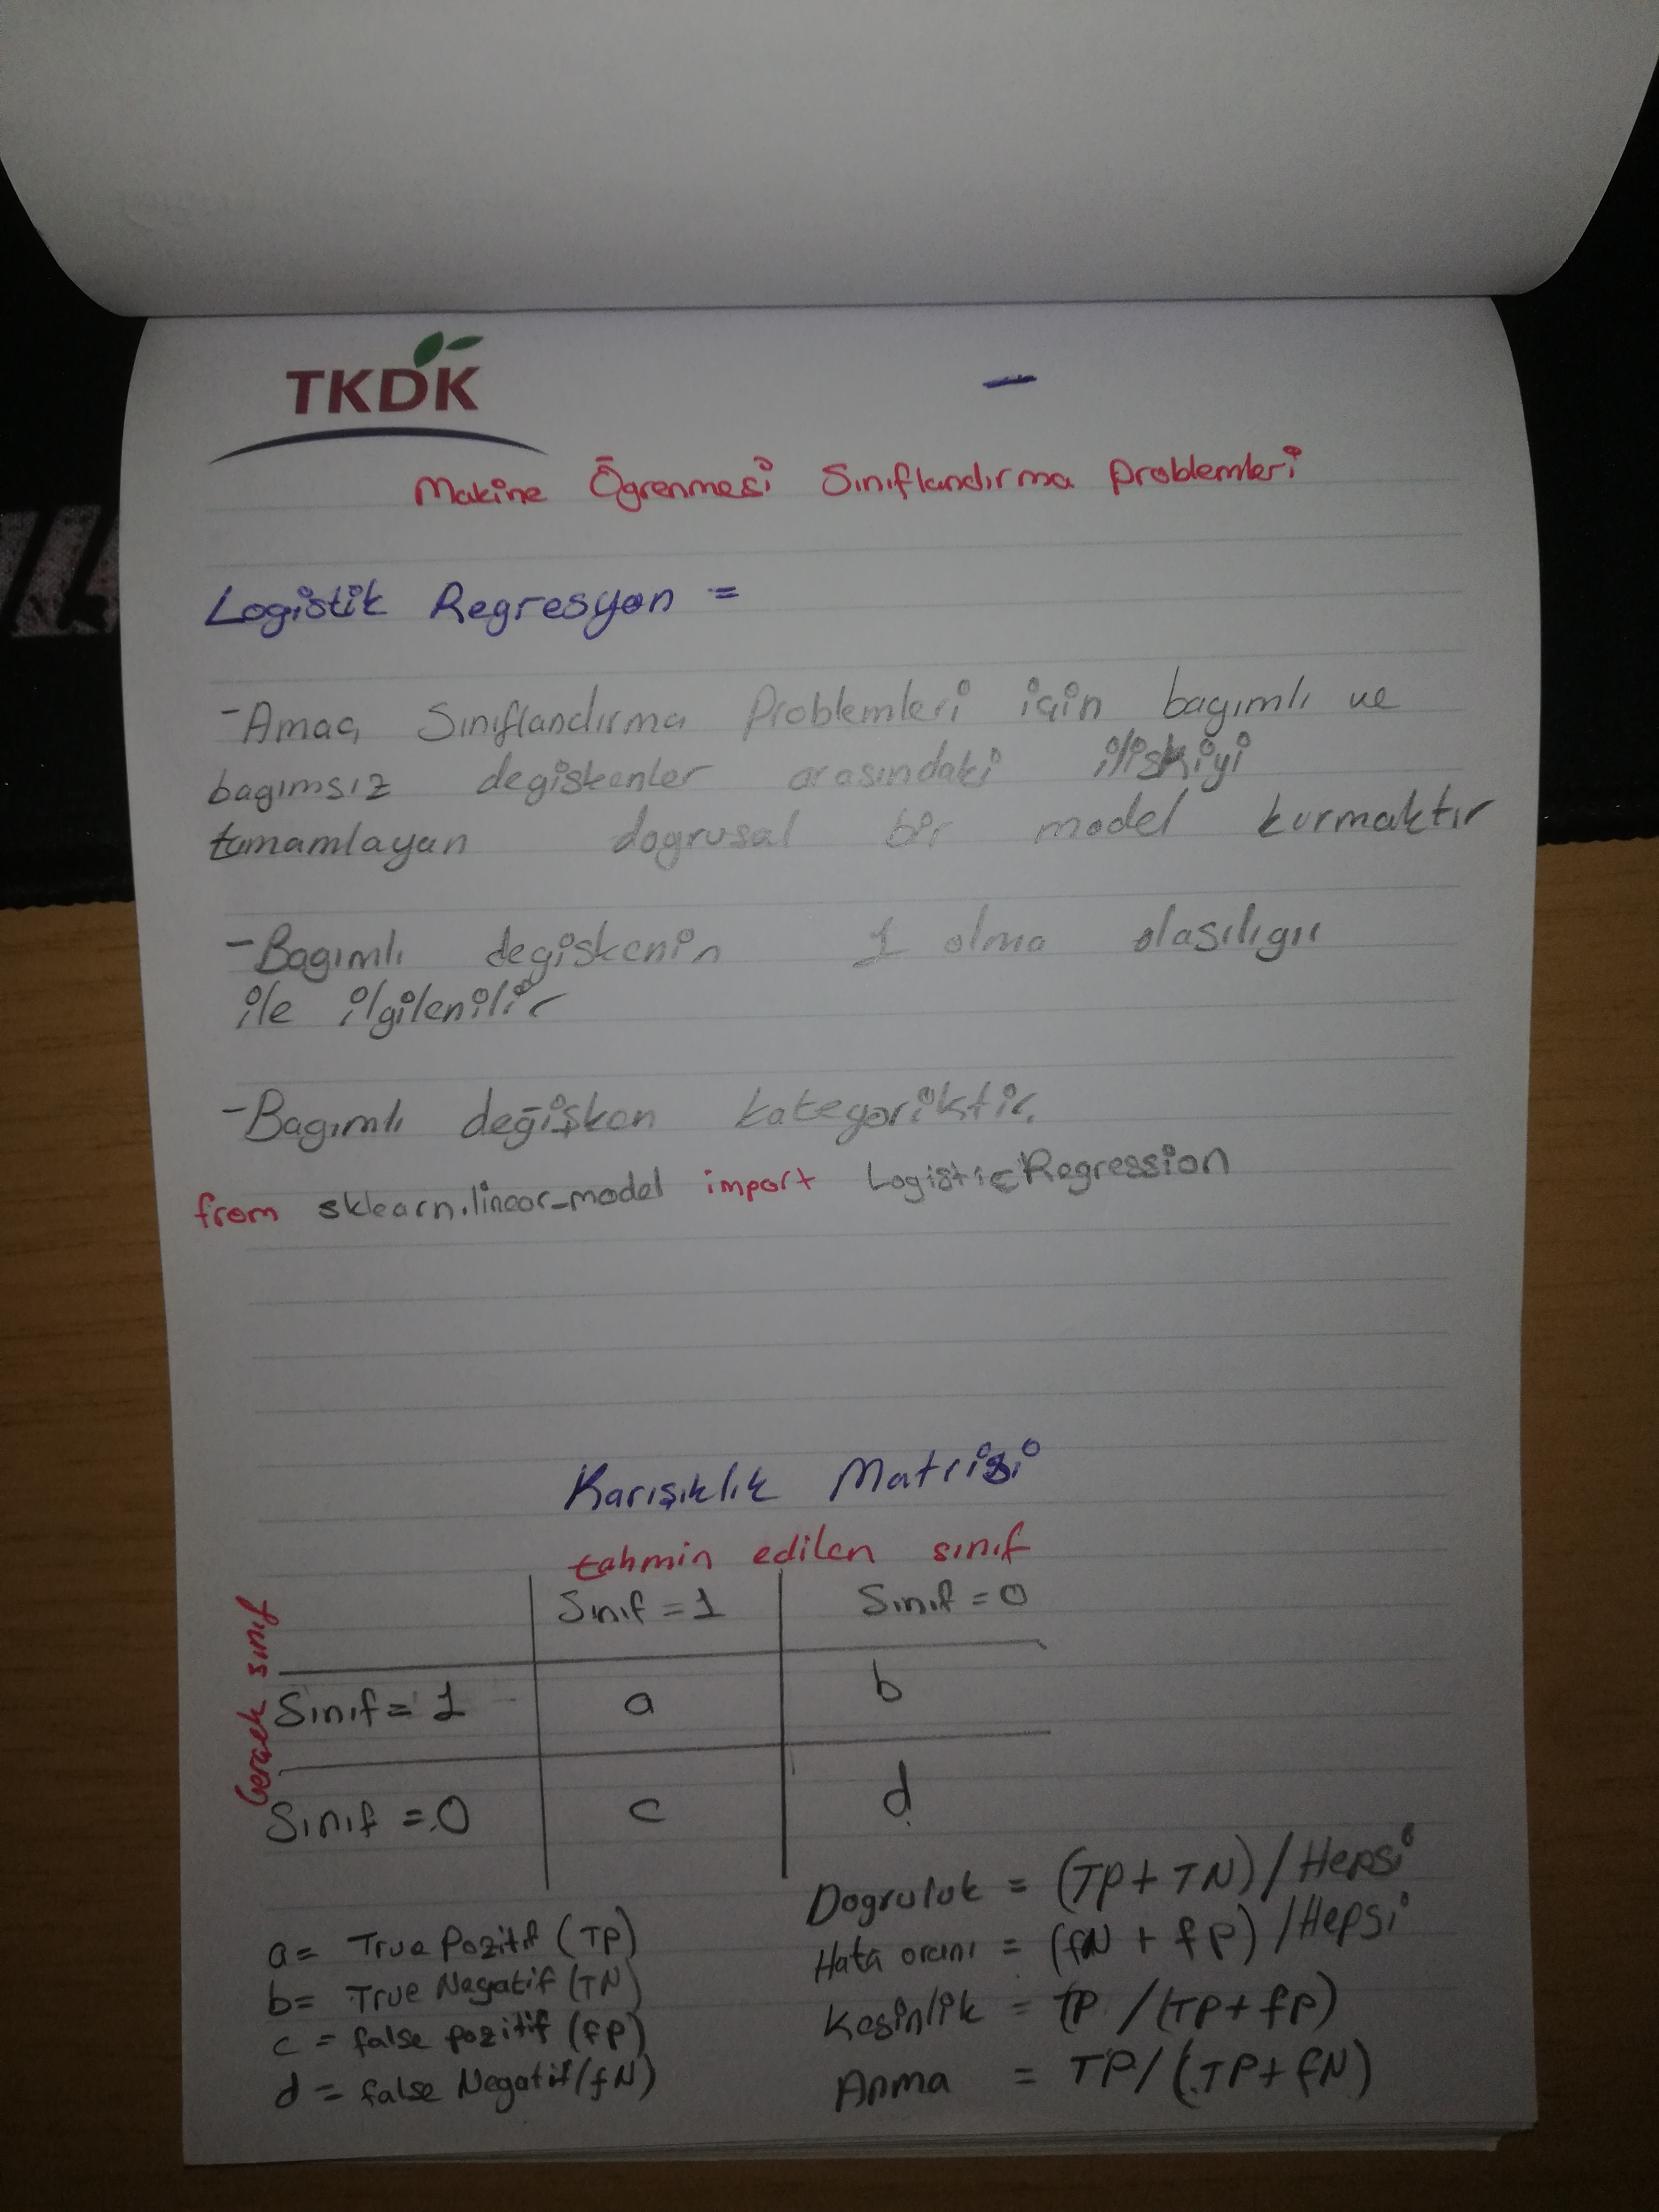 TKDK
Makine Öğrenmesi Sınıflandırma Problemleri
Logistik Regresyon =
-Amaç Sınıflandırma Problemleri için bagımlı ve
bagımsız degiskenler arasındaki iliskiyi
tamamlayan dogrusal bir model kurmaktır
-Bagımlı degiskenin 1 olma olasılıgıı
ile ilgilenilir
-Bagımlı değişken kategoriktir.
from sklearn.linear_model import LogisticRegression
Karışıklık Matrisi
tahmin edilen sınıf
Gerçek sınıf
Sınıf = 1 Sınıf = 0
Sınıf = 1 a b
Sınıf = 0 c d
a = True Pozitif (TP)
b = True Negatif (TN)
c = false pozitif (fp)
d = false Negatif (fN)
Dogruluk = (TP + TN) / Hepsi
Hata oranı = (fN + fp) / Hepsi
Kesinlik = TP / (TP + fp)
Anma = TP / (TP + fN)